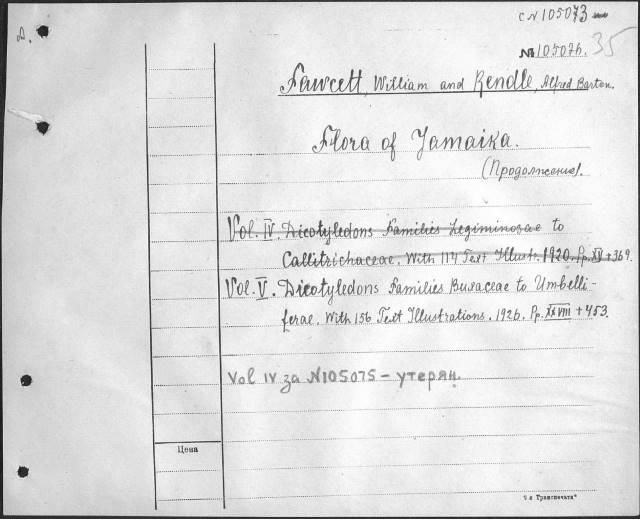 A.
с N105073
N105076. 35
Fawcett, William and Rendle, Alfred Barton.
Flora of Jamaika.
(Продолжение).
Vol. IV. Dicotyledons Families Legiminosae to
Callitrichaceae. With 114 Text Illustr. 1920. Pp. XV + 369.
Vol. V. Dicotyledons Families Buxaceae to Umbelli-
ferae. With 156 Text Illustrations. 1926. Pp. XXVIII + 453.
Vol IV за N105075 – утерян.
Цена
7-я Транспечать"